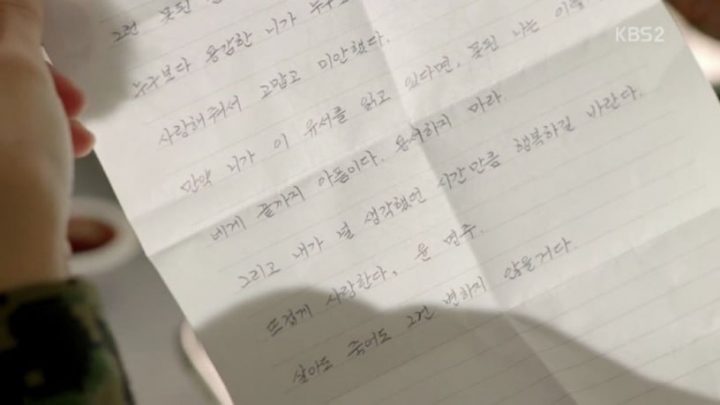 KBS2
그건 못된
누구보다 용감한 니가 누구
사랑해줘서 고맙고 미안했다.
만약 니가 이 유서를 읽고 있다면, 못된 나는 이렇
네게 끝까지 아픔이다. 용서하지 마라.
그리고 내가 널 생각했던 시간만큼 행복하길 바란다.
뜨겁게 사랑한다, 윤 명주.
살아도 죽어도 그건 변하지 않을거다.